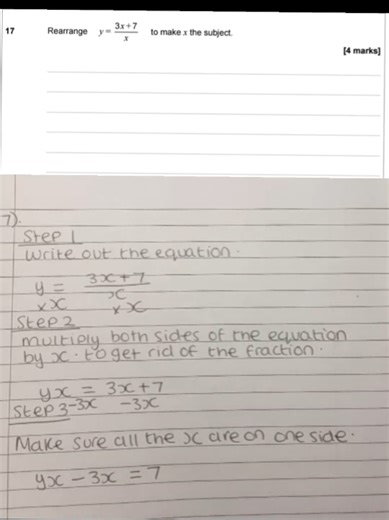 17 Rearrange y = 3x+7/x to make x the subject.
[4 marks]
7).
Step 1
Write out the equation.
y = 3x+7/x
×x ×x
Step 2
multiply both sides of the equation
by x. to get rid of the fraction.
yx = 3x+7
Step 3 -3x -3x
Make sure all the x are on one side.
yx - 3x = 7